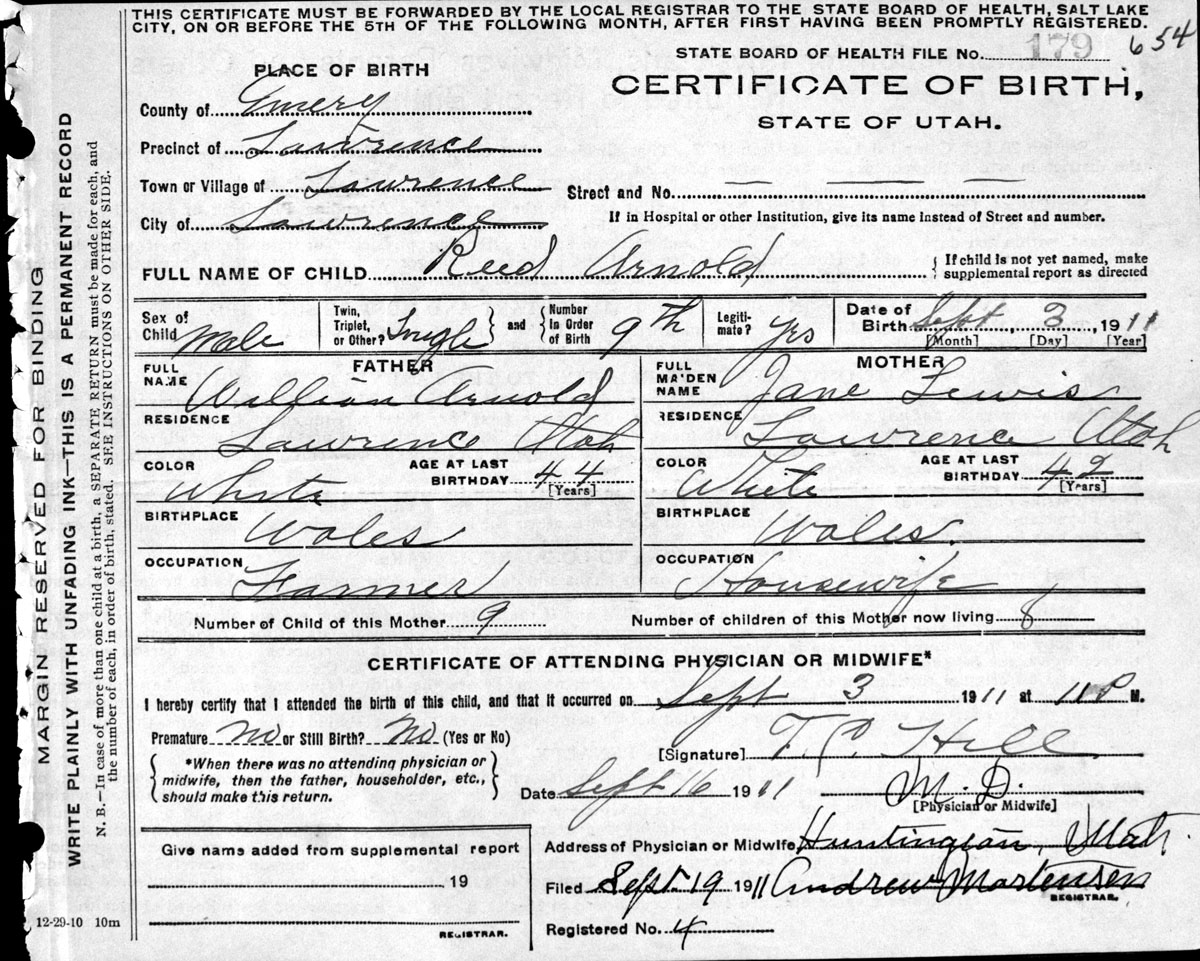 THIS CERTIFICATE MUST BE FORWARDED BY THE LOCAL REGISTRAR TO THE STATE BOARD OF HEALTH, SALT LAKE
CITY, ON OR BEFORE THE 5TH OF THE FOLLOWING MONTH, AFTER FIRST HAVING BEEN PROMPTLY REGISTERED.
STATE BOARD OF HEALTH FILE No. 179 654
PLACE OF BIRTH
CERTIFICATE OF BIRTH,
STATE OF UTAH.
County of Emery
Precinct of Lawrence
Town or Village of Lawrence Street and No. — — —
City of Lawrence If in Hospital or other Institution, give its name instead of Street and number.
FULL NAME OF CHILD Reed Arnold { If child is not yet named, make
supplemental report as directed
Sex of
Child Male
Twin,
Triplet,
or Other? Single } and { Number
in Order
of Birth 9th
Legiti-
mate? Yes
Date of
Birth Sept, 3, 1911
[Month] [Day] [Year]
FATHER
FULL
NAME William Arnold
RESIDENCE
Lawrence Utah
COLOR
White
AGE AT LAST
BIRTHDAY 44
[Years]
BIRTHPLACE
Wales
OCCUPATION
Farmer
MOTHER
FULL
MAIDEN
NAME Jane Lewis
RESIDENCE
Lawrence Utah
COLOR
White
AGE AT LAST
BIRTHDAY 42
[Years]
BIRTHPLACE
Wales.
OCCUPATION
Housewife
Number of Child of this Mother 9 Number of children of this Mother now living 8
CERTIFICATE OF ATTENDING PHYSICIAN OR MIDWIFE*
I hereby certify that I attended the birth of this child, and that it occurred on Sept 3 1911 at 11 P M.
Premature No or Still Birth? No (Yes or No)
[Signature] T. C. Hill
{ *When there was no attending physician or
midwife, then the father, householder, etc.,
should make this return. }
Date Sept 16 1911 M. D.
[Physician or Midwife]
Give name added from supplemental report
19
REGISTRAR.
Address of Physician or Midwife Huntington, Utah.
Filed Sept. 19 1911 Andrew Mortensen
REGISTRAR.
Registered No. 4
12-29-10 10m
MARGIN RESERVED FOR BINDING
WRITE PLAINLY WITH UNFADING INK—THIS IS A PERMANENT RECORD
N. B.—In case of more than one child at a birth, a SEPARATE RETURN must be made for each, and
the number of each, in order of birth, stated. SEE INSTRUCTIONS ON OTHER SIDE.